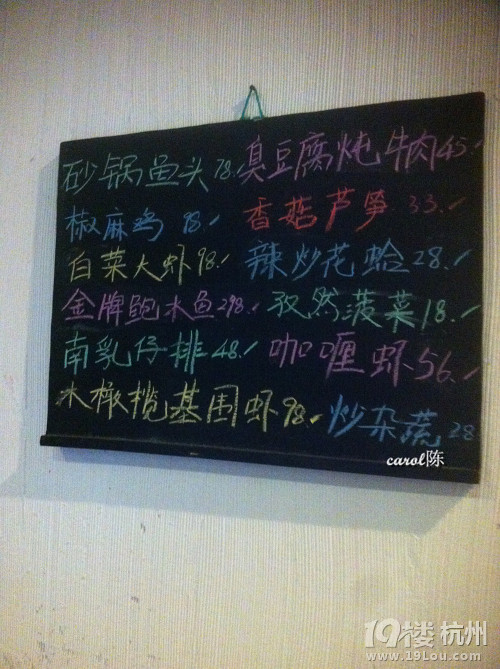 砂锅鱼头78.✓ 臭豆腐炖牛肉45✓
椒麻鸡 98✓ 香菇芦笋 33.✓
白菜大虾98.✓ 辣炒花蛤28.✓
金牌鲍木鱼298.✓ 孜然菠菜18.✓
南乳仔排48.✓ 咖喱虾56.✓
木橄榄基围虾98.✓ 炒杂蔬 28
carol陈
19楼 杭州
www.19lou.com